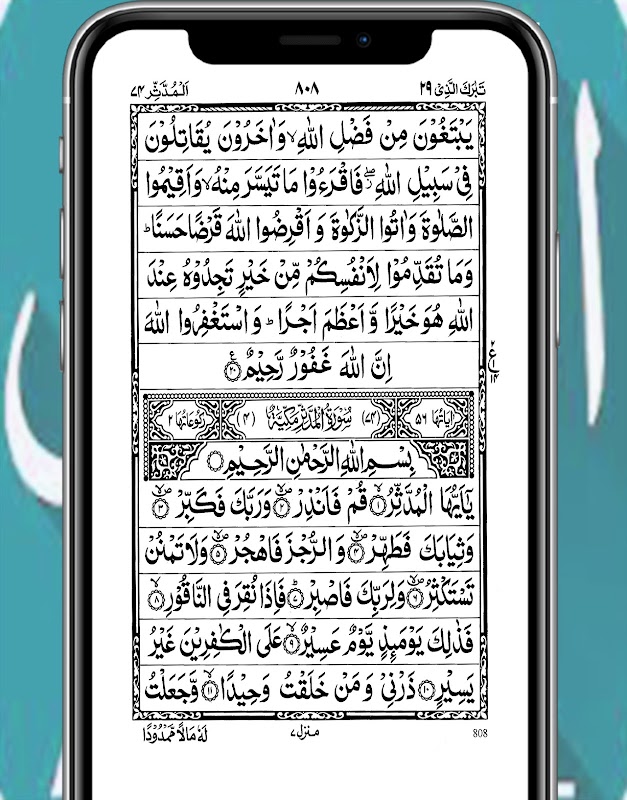 تَبٰرَكَ الَّذِیْ ٢٩ ٨٠٨ اَلْمُدَّثِّر ٧٤
يَبْتَغُوْنَ مِنْ فَضْلِ اللّٰهِ ۙ وَاٰخَرُوْنَ يُقَاتِلُوْنَ
فِیْ سَبِيْلِ اللّٰهِ ۖ فَاقْرَءُوْا مَا تَيَسَّرَ مِنْهُ ۙ وَاَقِيْمُوا
الصَّلٰوةَ وَاٰتُوا الزَّكٰوةَ وَ اَقْرِضُوا اللّٰهَ قَرْضًا حَسَنًا ؕ
وَمَا تُقَدِّمُوْا لِاَنْفُسِكُمْ مِّنْ خَيْرٍ تَجِدُوْهُ عِنْدَ
اللّٰهِ هُوَ خَيْرًا وَّ اَعْظَمَ اَجْرًا ؕ وَ اسْتَغْفِرُوا اللّٰهَ
اِنَّ اللّٰهَ غَفُوْرٌ رَّحِيْمٌ ۝٢٠
٢ ع ١٤
اٰيَاتُهَا ٥٦ (٧٤) سُوْرَةُ الْمُدَّثِّرِ مَكِّيَّةٌ (٤) رُكُوْعَاتُهَا ٢
بِسْمِ اللّٰهِ الرَّحْمٰنِ الرَّحِيْمِ ۝
يٰۤاَيُّهَا الْمُدَّثِّرُ ۝١ قُمْ فَاَنْذِرْ ۝٢ وَرَبَّكَ فَكَبِّرْ ۝٣
وَثِيَابَكَ فَطَهِّرْ ۝٤ وَ الرُّجْزَ فَاهْجُرْ ۝٥ وَلَا تَمْنُنْ
تَسْتَكْثِرُ ۝٦ وَلِرَبِّكَ فَاصْبِرْ ۝٧ فَاِذَا نُقِرَ فِی النَّاقُوْرِ ۝٨
فَذٰلِكَ يَوْمَىِٕذٍ يَّوْمٌ عَسِيْرٌ ۝٩ عَلَى الْكٰفِرِيْنَ غَيْرُ
يَسِيْرٍ ۝١٠ ذَرْنِیْ وَ مَنْ خَلَقْتُ وَحِيْدًا ۝١١ وَّجَعَلْتُ
لَهٗ مَالًا مَّمْدُوْدًا
منزل ٧
808